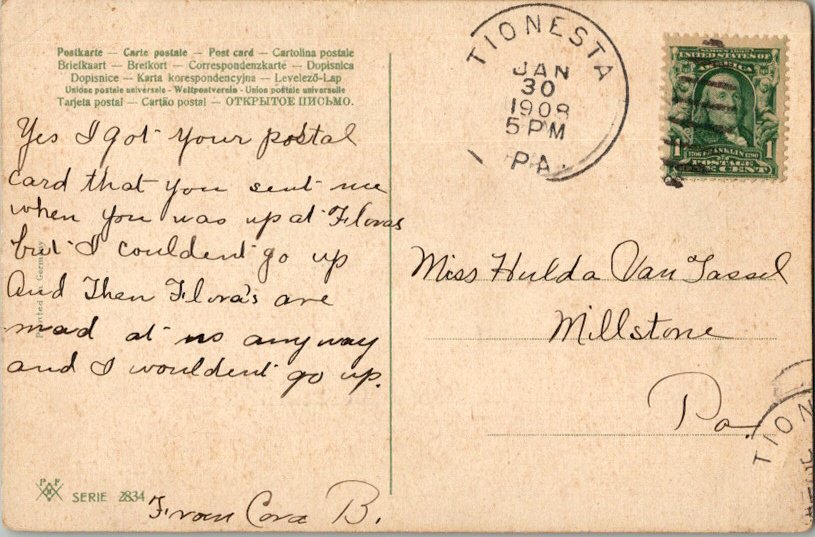 Postkarte — Carte postale — Post card — Cartolina postale
Briefkaart — Brefkort — Correspondenzkarte — Dopisnica
Dopisnice — Karta korespondencyjna — Levelező-Lap
Unione postale universale - Weltpostverein - Union postale universelle
Tarjeta postal — Cartão postal — ОТКРЫТОЕ ПИСЬМО.
TIONESTA
JAN
30
1908
5 PM
PA.
UNITED STATES OF
AMERICA
1 1
FRANKLIN
POSTAGE
ONE CENT
Yes I got your postal
card that you sent me
when you was up at Floras
but I couldent go up
And Then Flora's are
mad at us anyway
and I wouldent go up.
Printed in Germany
Miss Hulda Van Tassel
Millstone
Pa.
TION
P F B
SERIE 2834
From Cora B.